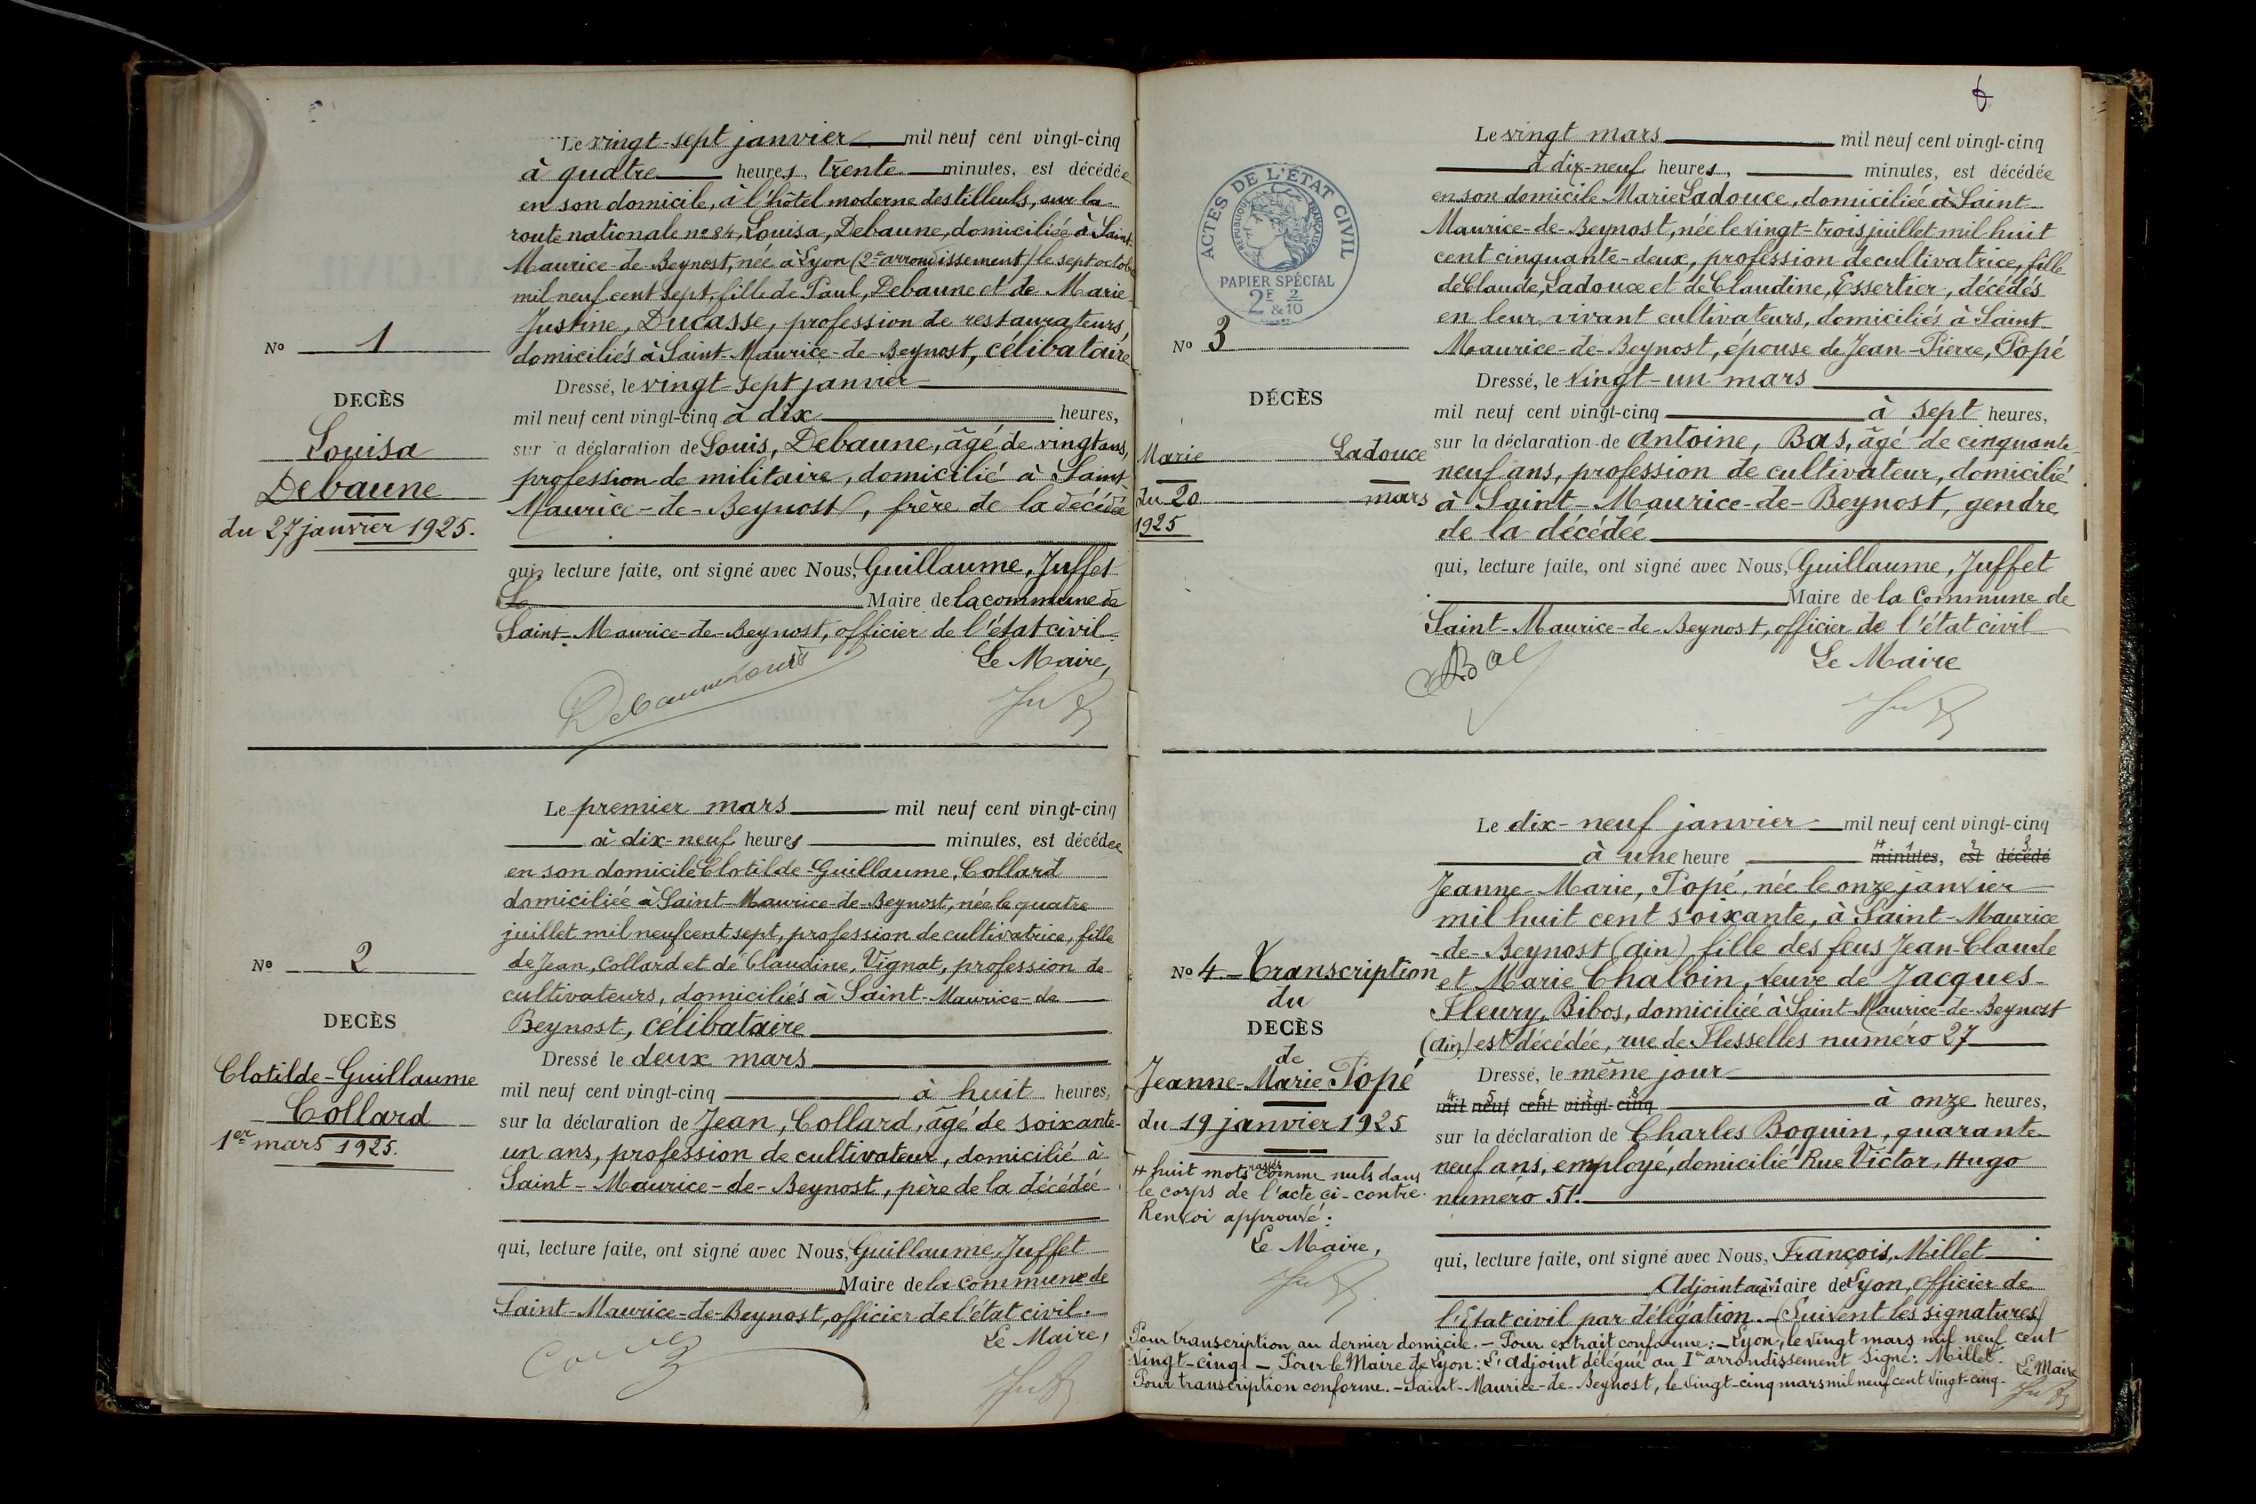 Le vingt-sept janvier mil neuf cent vingt-cinq
à quatre heures, trente minutes, est décédée
en son domicile, à l'hôtel moderne des tilleuls, sur la
route nationale no 84, Louisa, Debaune, domiciliée à Saint-
Maurice-de-Beynost, née à Lyon (2e arrondissement) le sept octobre
mil neuf cent sept, fille de Paul, Debaune et de Marie
Justine, Ducasse, profession de restaurateurs,
domiciliés à Saint-Maurice-de-Beynost, célibataire
Dressé, le vingt-sept janvier
mil neuf cent vingt-cinq à dix heures,
sur la déclaration de Louis, Debaune, âgé de vingt ans,
profession de militaire, domicilié à Saint
Maurice-de-Beynost, frère de la décédée
qui, lecture faite, ont signé avec Nous, Guillaume, Juffet
Le Maire de la commune de
Saint-Maurice-de-Beynost, officier de l'état civil.
Le Maire,
Debaune Louis
No 1
DECÈS
Louisa
Debaune
du 27 janvier 1925.
Le premier mars mil neuf cent vingt-cinq
à dix-neuf heures minutes, est décédée
en son domicile Clotilde-Guillaume, Collard
domiciliée à Saint-Maurice-de-Beynost, née le quatre
juillet mil neuf cent sept, profession de cultivatrice, fille
de Jean, Collard et de Claudine, Vignat, profession de
cultivateurs, domiciliés à Saint-Maurice-de
Beynost, célibataire
Dressé le deux mars
mil neuf cent vingt-cinq à huit heures,
sur la déclaration de Jean, Collard, âgé de soixante-
un ans, profession de cultivateur, domicilié à
Saint-Maurice-de-Beynost, père de la décédée
qui, lecture faite, ont signé avec Nous, Guillaume, Juffet
Maire de la commune de
Saint-Maurice-de-Beynost, officier de l'état civil.
Le Maire,
No 2
DECÈS
Clotilde-Guillaume
Collard
1er mars 1925.
6
ACTES DE L'ÉTAT CIVIL
RÉPUBLIQUE FRANÇAISE
PAPIER SPÉCIAL
2F & 2/10
Le vingt mars mil neuf cent vingt-cinq
à dix-neuf heures, minutes, est décédée
en son domicile Marie Ladouce, domiciliée à Saint-
Maurice-de-Beynost, née le vingt-trois juillet mil huit
cent cinquante-deux, profession de cultivatrice, fille
de Claude, Ladouce et de Claudine, Essertier, décédés
en leur vivant cultivateurs, domiciliés à Saint-
Maurice-de-Beynost, épouse de Jean-Pierre, Popé
Dressé, le vingt-un mars
mil neuf cent vingt-cinq à sept heures,
sur la déclaration de Antoine, Bas, âgé de cinquante-
neuf ans, profession de cultivateur, domicilié
à Saint-Maurice-de-Beynost, gendre
de la décédée
qui, lecture faite, ont signé avec Nous, Guillaume, Juffet
Maire de la Commune de
Saint-Maurice-de-Beynost, officier de l'état civil
Le Maire
Bas
No 3
DÉCÈS
Marie Ladouce
du 20 mars
1925
Le dix-neuf janvier mil neuf cent vingt-cinq
à une heure minutes, est décédé
Jeanne-Marie, Popé, née le onze janvier
mil huit cent soixante, à Saint-Maurice
-de-Beynost (Ain) fille des feus Jean-Claude
et Marie Chaloin, veuve de Jacques-
Fleury, Bibos, domiciliée à Saint-Maurice-de-Beynost
(Ain) est décédée, rue de Flesselles numéro 27
Dressé, le même jour
mil neuf cent vingt-cinq à onze heures,
sur la déclaration de Charles Boquin, quarante-
neuf ans, employé, domicilié Rue Victor, Hugo
numéro 51.
qui, lecture faite, ont signé avec Nous, François, Millet
Adjoint au Maire de Lyon, officier de
l'Etat civil par délégation. (Suivent les signatures)
Pour transcription au dernier domicile. - Pour extrait conforme: - Lyon, le vingt mars mil neuf cent
vingt-cinq - Pour le Maire de Lyon: L'adjoint délégué au Ier arrondissement Signé: Millet.
Pour transcription conforme. - Saint-Maurice-de-Beynost, le vingt-cinq mars mil neuf cent vingt-cinq. Le Maire
No 4 - Transcription
du
DECÈS
de
Jeanne-Marie Popé
du 19 janvier 1925
# huit mots rayés comme nuls dans
le corps de l'acte ci-contre.
Renvoi approuvé:
Le Maire,